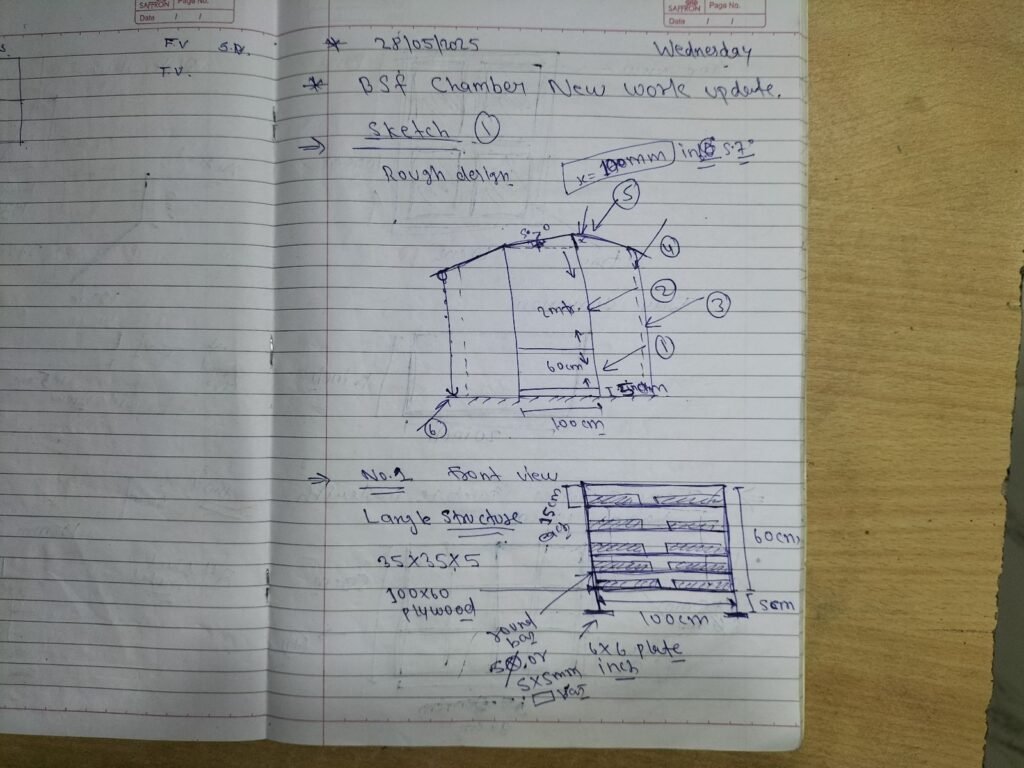 SAFFRON
Page No.
Date / /
SAFFRON
Page No.
Date / /
F.V S.V.
T.V.
* 28/05/2025 Wednesday
* BSf Chamber New work update.
⇒ Sketch ①
Rough design
x = 100mm in 5.7°
⑤
5.7°
x
④
②
③
2mtr.
①
60cm
⑥
100cm
⇒ No.1 Front view
Langle Structure
35X35X5
100X60
plywood
15cm
each
60cm
5cm
100cm
round
bar
5Ø, or
5X5mm
□ bar
6X6 plate
inch